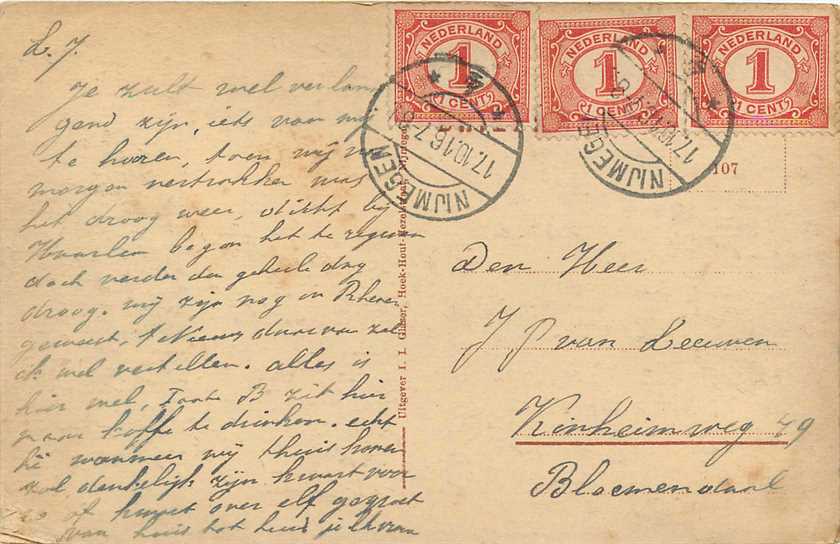 L. J.
Je zult wel verlan
gend zijn, iets van mij
te hooren, toen wij
morgen vertrokken was
het droog weer, dicht bij
Haarlem begon het te regenen
doch verder den geheele dag
droog. wij zijn nog in Rhenen
geweest, 't Nieuws daarvan zal
ik wel vertellen. alles is
hier wel, Tante B zit hier
naar koffe te drinken. echt
hé wanneer wij thuis komen
zal denkelijk zijn kwart voor
of kwart over elf gegroet
van huis tot huis
NEDERLAND
1
1 CENT
NEDERLAND
1
1 CENT
NEDERLAND
1
1 CENT
NIJMEGEN
17.10.16.7-8
NIJMEGEN
17.10.16
107
Uitgever I. I. Hoek-Hout-Hezelstraat, Nijmegen
Den Heer
J P van Leeuwen
Kinheimweg 49
Bloemendaal